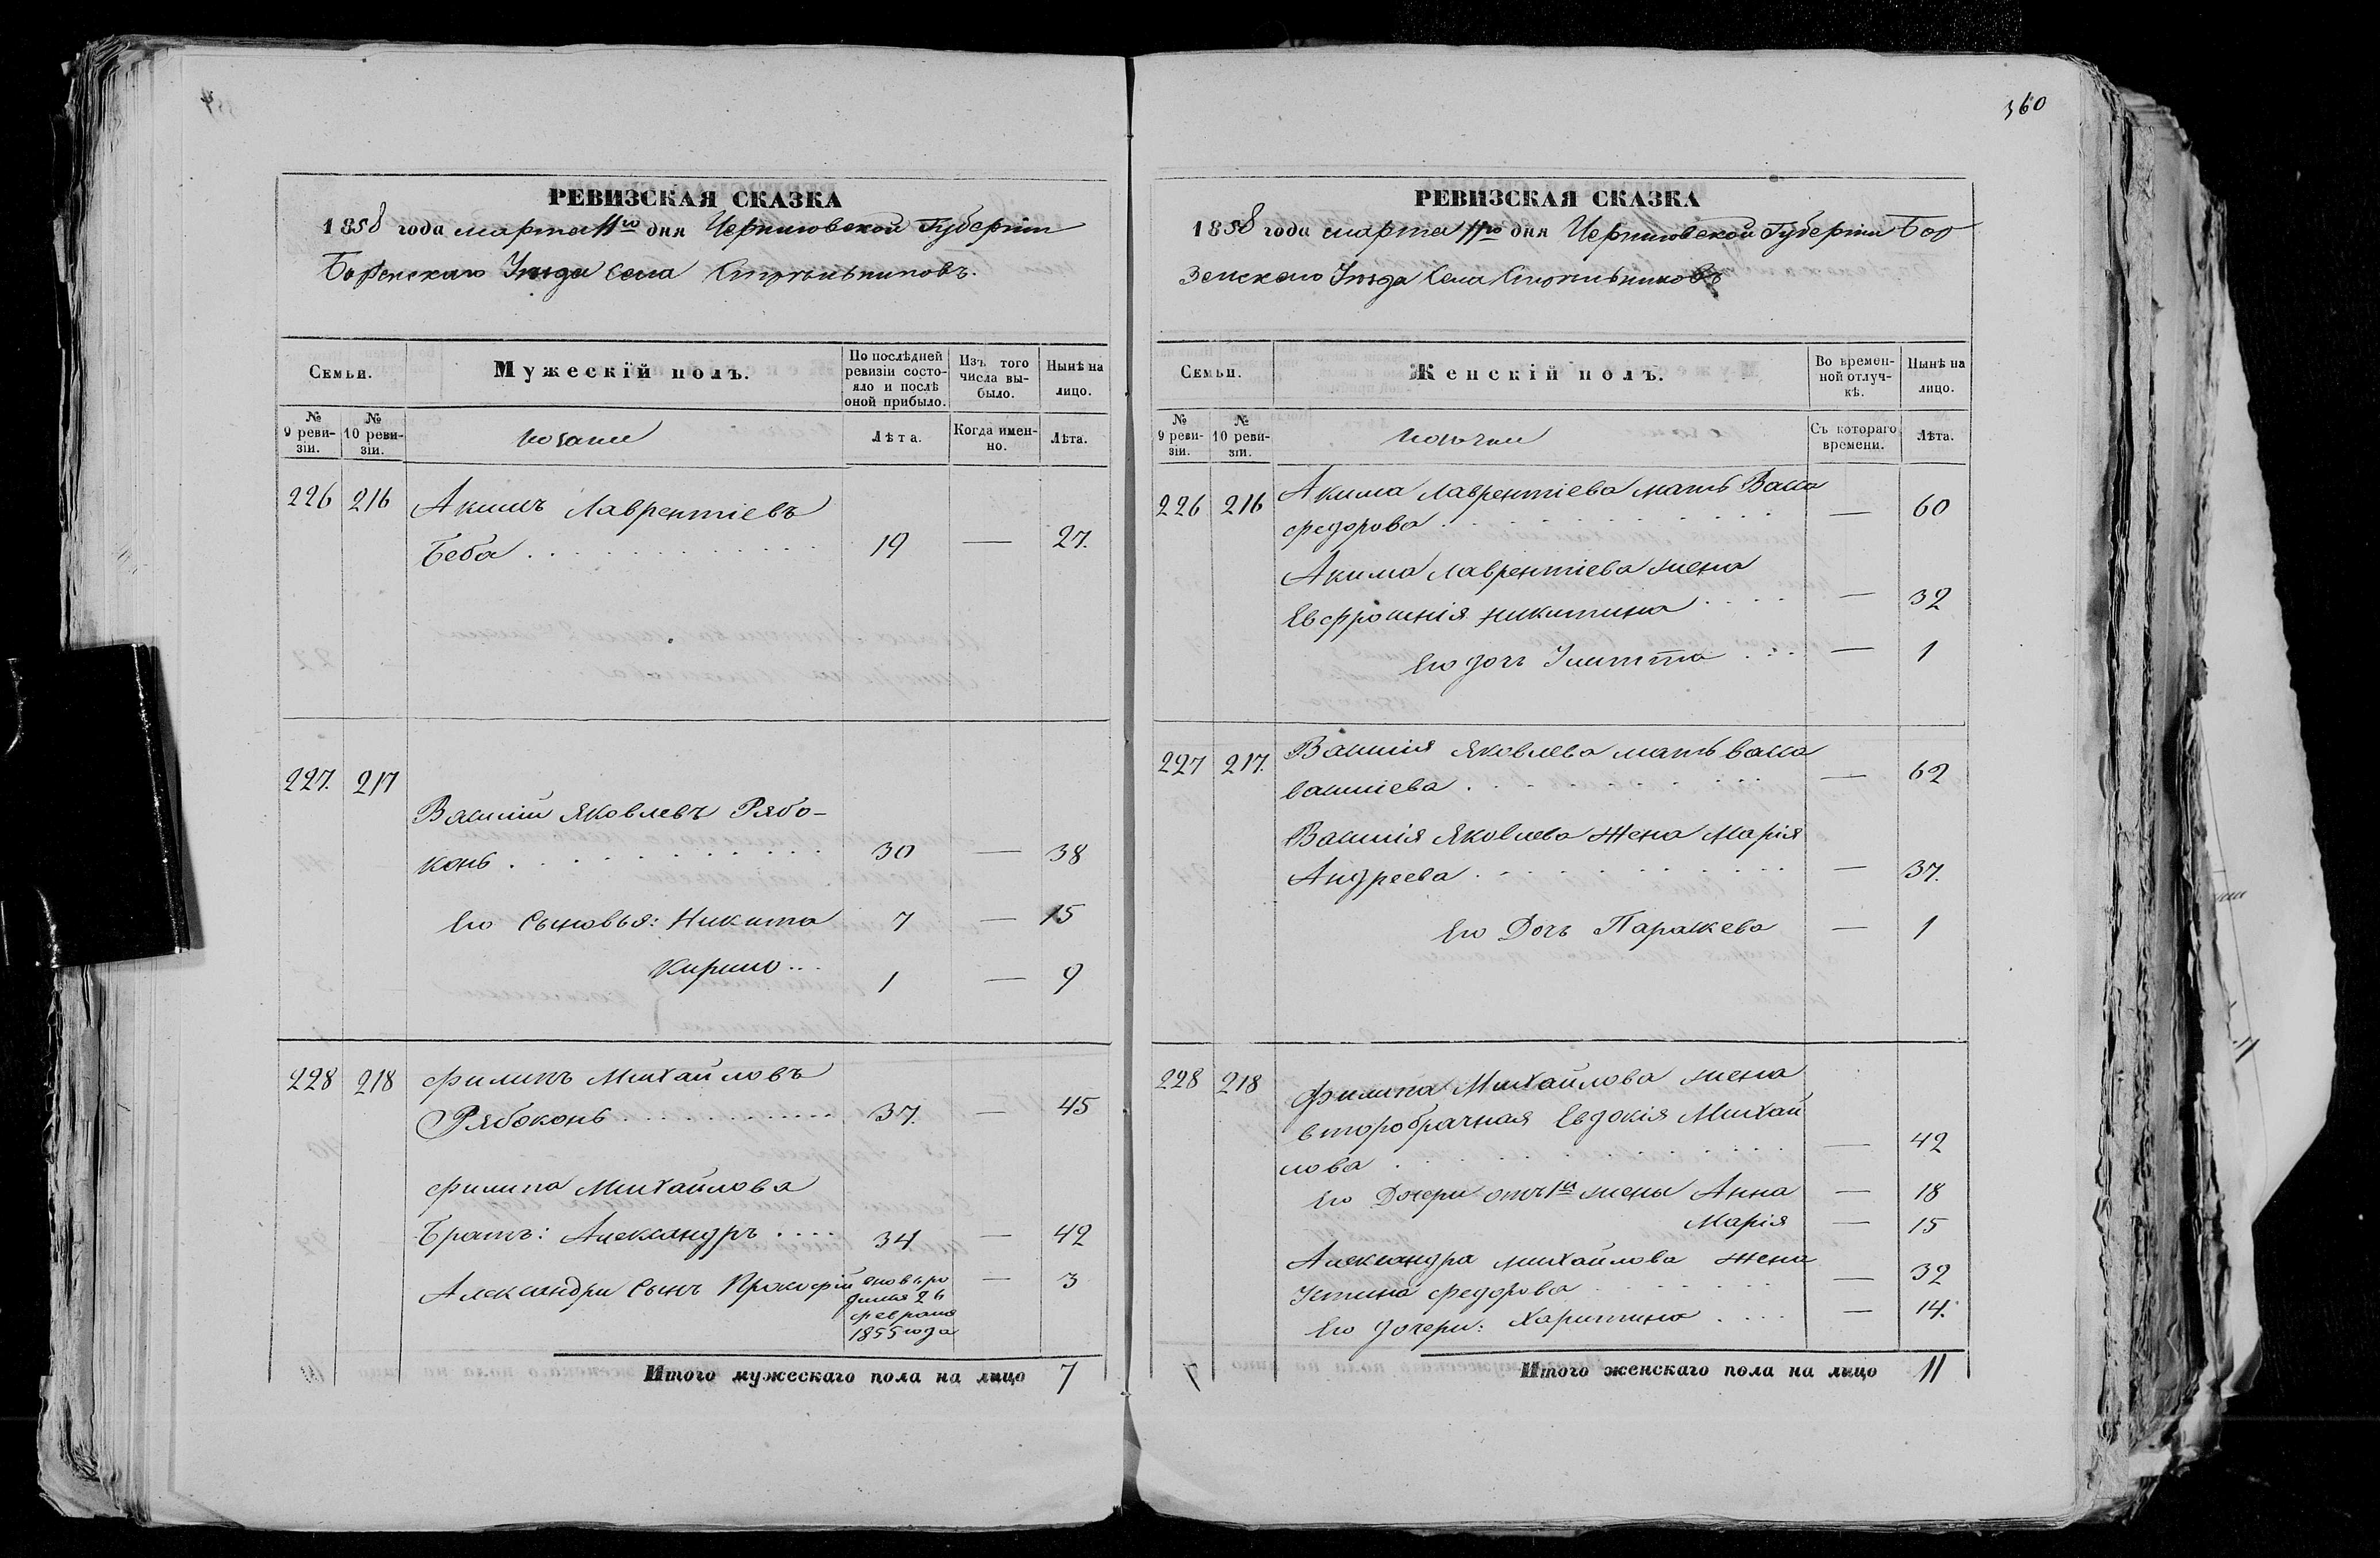 РЕВИЗСКАЯ СКАЗКА
1858 года марта 11го дня Черниговской Губерніи
Борзенскаго Уѣзда Села
Семьи.
Мужескій полъ.
По послѣдней ревизіи состояло и послѣ оной прибыло.
Изъ того числа выбыло.
Нынѣ на лицо.
№ 9 ревизіи.
№ 10 ревизіи.
козаки
Лѣта.
Когда именно.
Лѣта.
226 216 Акимъ Лаврентіевъ
Беба 19 — 27.
227. 217
Василій Яковлевъ Рябо-
конь 30 — 38
Его Сыновья: Никита 7 — 15
Кирило 1 — 9
228 218 Филипъ Михайловъ
Рябоконь 37. — 45
Филипа Михайлова
Братъ: Александръ 34 — 42
Александра Сынъ Прокофій — 3
26
февраля
1855 года
Итого мужескаго пола на лицо 7
360
РЕВИЗСКАЯ СКАЗКА
1858 года марта 11го дня Черниговской Губерніи Бор
зенскаго Уѣзда Села
Семьи.
Женскій полъ.
Во временной отлучкѣ.
Нынѣ на лицо.
№ 9 ревизіи.
№ 10 ревизіи.
козачки
Съ котораго времени.
Лѣта.
226 216 Акима Лаврентіева мать Васса
Федорова — 60
Акима Лаврентіева жена
Евфросинія Никитина — 32
Его дочь Улита — 1
227 217. Василія Яковлева мать Васса
Василіева — 62
Василія Яковлева Жена Марія
Андреева — 37.
Его Дочь Параскева — 1
228 218 Филипа Михайлова жена
второбрачная Евдокія Михай
лова — 42
Его Дочери отъ 1й жены Анна — 18
Марія — 15
Александра Михайлова Жена
Устина Федорова — 32
Его дочери: Харитина — 14.
Итого женскаго пола на лицо 11